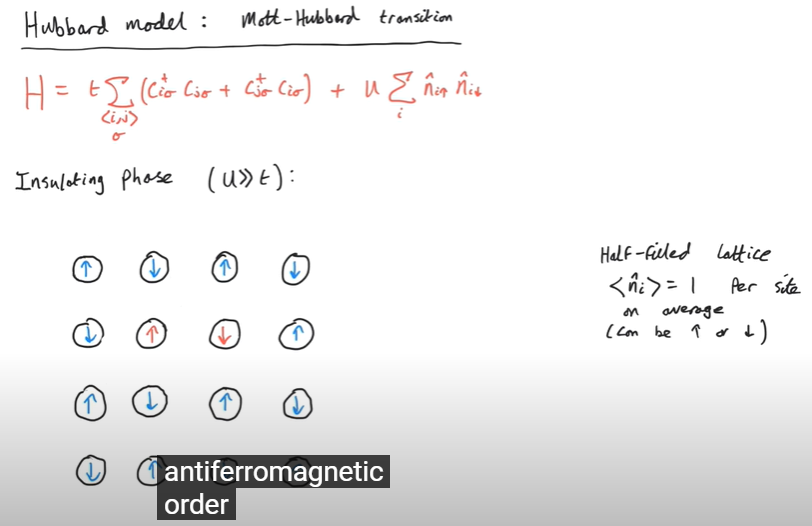 Hubbard model : Mott-Hubbard transition
H = t Σ (c†iσ cjσ + c†jσ ciσ) + u Σ n̂i↑ n̂i↓
<i,j> i
σ
Insulating phase (u≫t):
↑ ↓ ↑ ↓
Half-filled lattice
<n̂i> = 1 per site
on average
(can be ↑ or ↓)
↓ ↑ ↓ ↑
↑ ↓ ↑ ↓
↓ ↑
antiferromagnetic
order